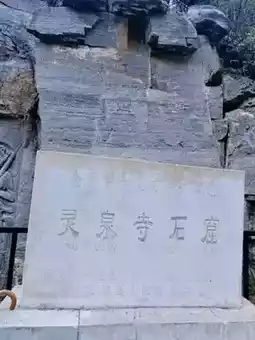 灵泉寺石窟